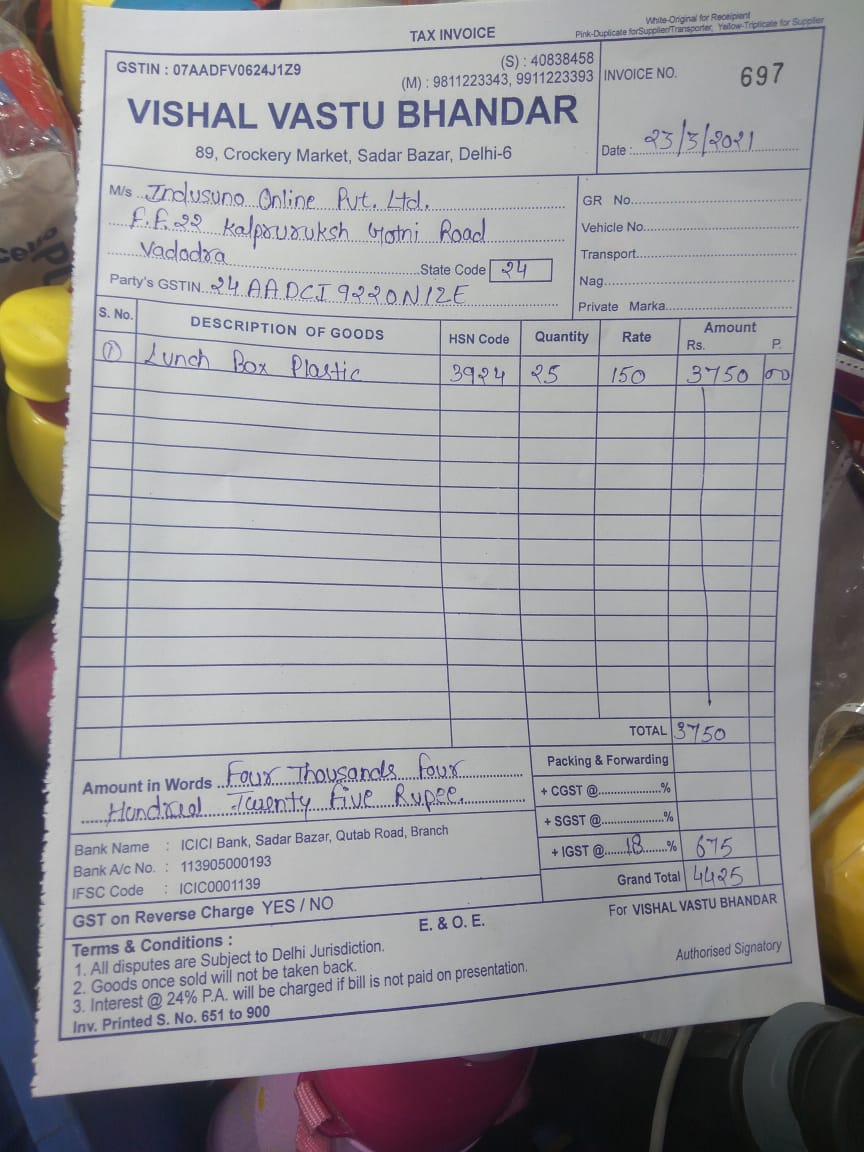 TAX INVOICE
White-Original for Receipient
Pink-Duplicate forSupplier/Transporter, Yellow-Triplicate for Supplier
GSTIN : 07AADFV0624J1Z9
(S) : 40838458
(M) : 9811223343, 9911223393
VISHAL VASTU BHANDAR
89, Crockery Market, Sadar Bazar, Delhi-6
INVOICE NO. 697
Date : 23/3/2021
M/s Indusuno Online Pvt. Ltd.
F.F.22 Kalpruruksh Gotri Road
Vadodra
State Code 24
Party's GSTIN 24AADCI9220N1ZE
GR No.
Vehicle No.
Transport
Nag
Private Marka
S. No. DESCRIPTION OF GOODS HSN Code Quantity Rate Amount
Rs. P.
1 Lunch Box Plastic 3924 25 150 3750 00
TOTAL 3750
Amount in Words Four Thousands Four
Hundred Twenty Five Rupee.
Packing & Forwarding
+ CGST @ %
+ SGST @ %
+ IGST @ 18 % 675
Grand Total 4425
Bank Name : ICICI Bank, Sadar Bazar, Qutab Road, Branch
Bank A/c No. : 113905000193
IFSC Code : ICIC0001139
GST on Reverse Charge YES / NO
E. & O. E.
For VISHAL VASTU BHANDAR
Authorised Signatory
Terms & Conditions :
1. All disputes are Subject to Delhi Jurisdiction.
2. Goods once sold will not be taken back.
3. Interest @ 24% P.A. will be charged if bill is not paid on presentation.
Inv. Printed S. No. 651 to 900